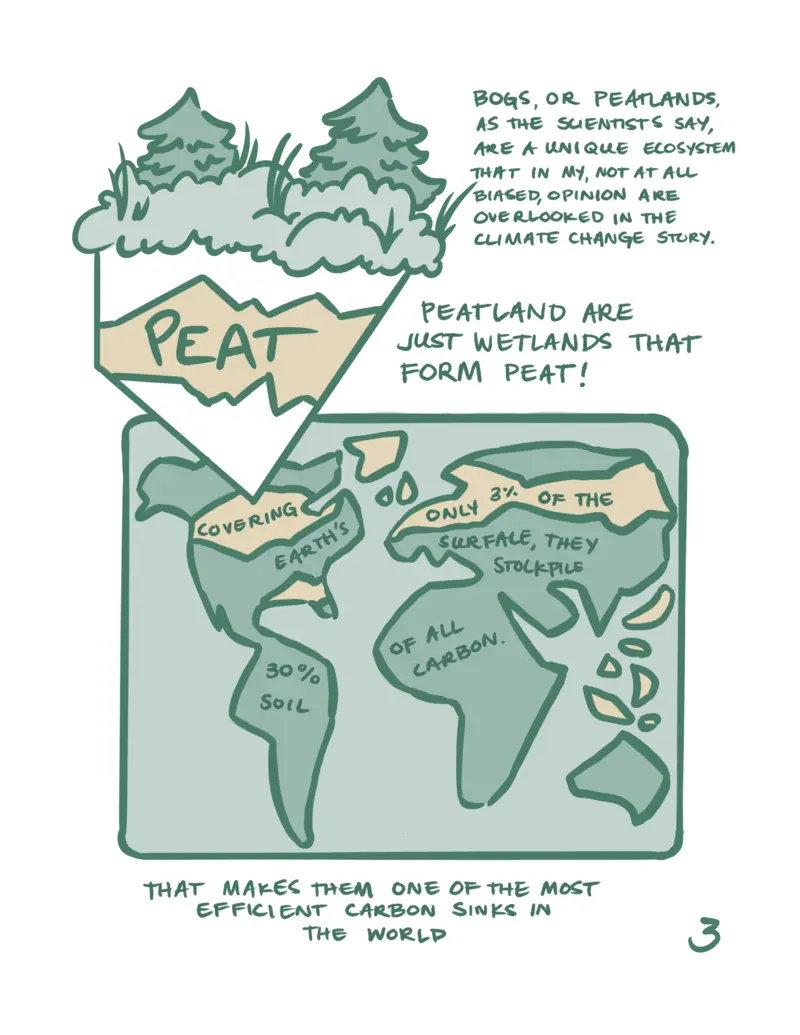 BOGS, OR PEATLANDS,
AS THE SCIENTISTS SAY,
ARE A UNIQUE ECOSYSTEM
THAT IN MY, NOT AT ALL
BIASED, OPINION ARE
OVERLOOKED IN THE
CLIMATE CHANGE STORY.
PEAT
PEATLAND ARE
JUST WETLANDS THAT
FORM PEAT!
COVERING
ONLY 3% OF THE
EARTH'S
SURFACE, THEY
STOCKPILE
30%
SOIL
OF ALL
CARBON.
THAT MAKES THEM ONE OF THE MOST
EFFICIENT CARBON SINKS IN
THE WORLD
3